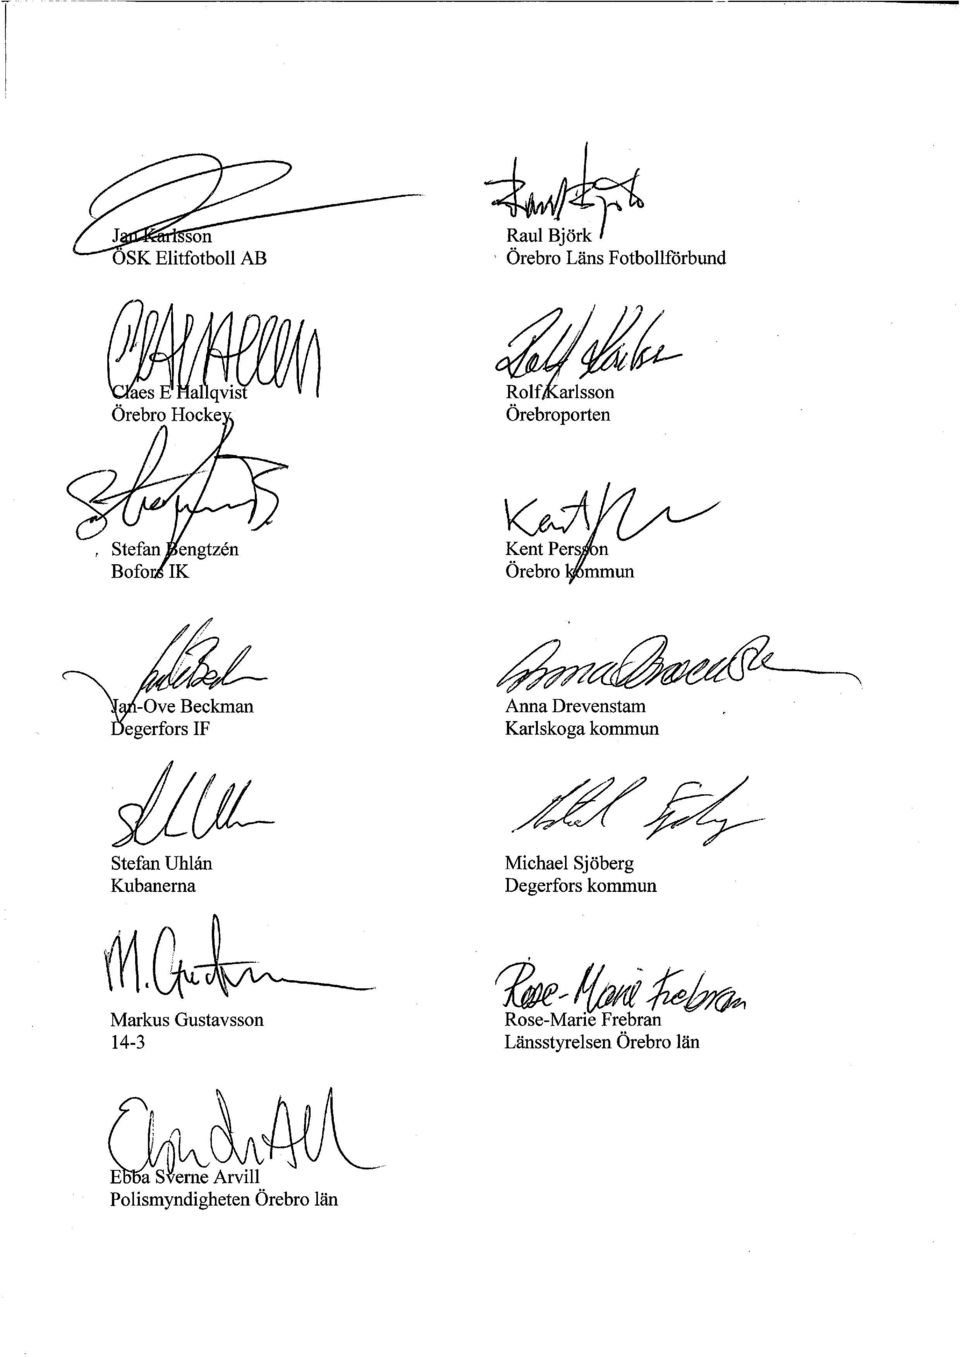 Jan Karlsson
ÖSK Elitfotboll AB
Raul Björk
Örebro Läns Fotbollförbund
Claes E Hallqvist
Örebro Hockey
Rolf Karlsson
Örebroporten
Stefan Bengtzén
Bofors IK
Kent Persson
Örebro kommun
Jan-Ove Beckman
Degerfors IF
Anna Drevenstam
Karlskoga kommun
Stefan Uhlán
Kubanerna
Michael Sjöberg
Degerfors kommun
M. Gustavsson
Markus Gustavsson
14-3
Rose-Marie Frebran
Rose-Marie Frebran
Länsstyrelsen Örebro län
Ebba Sverne Arvill
Polismyndigheten Örebro län